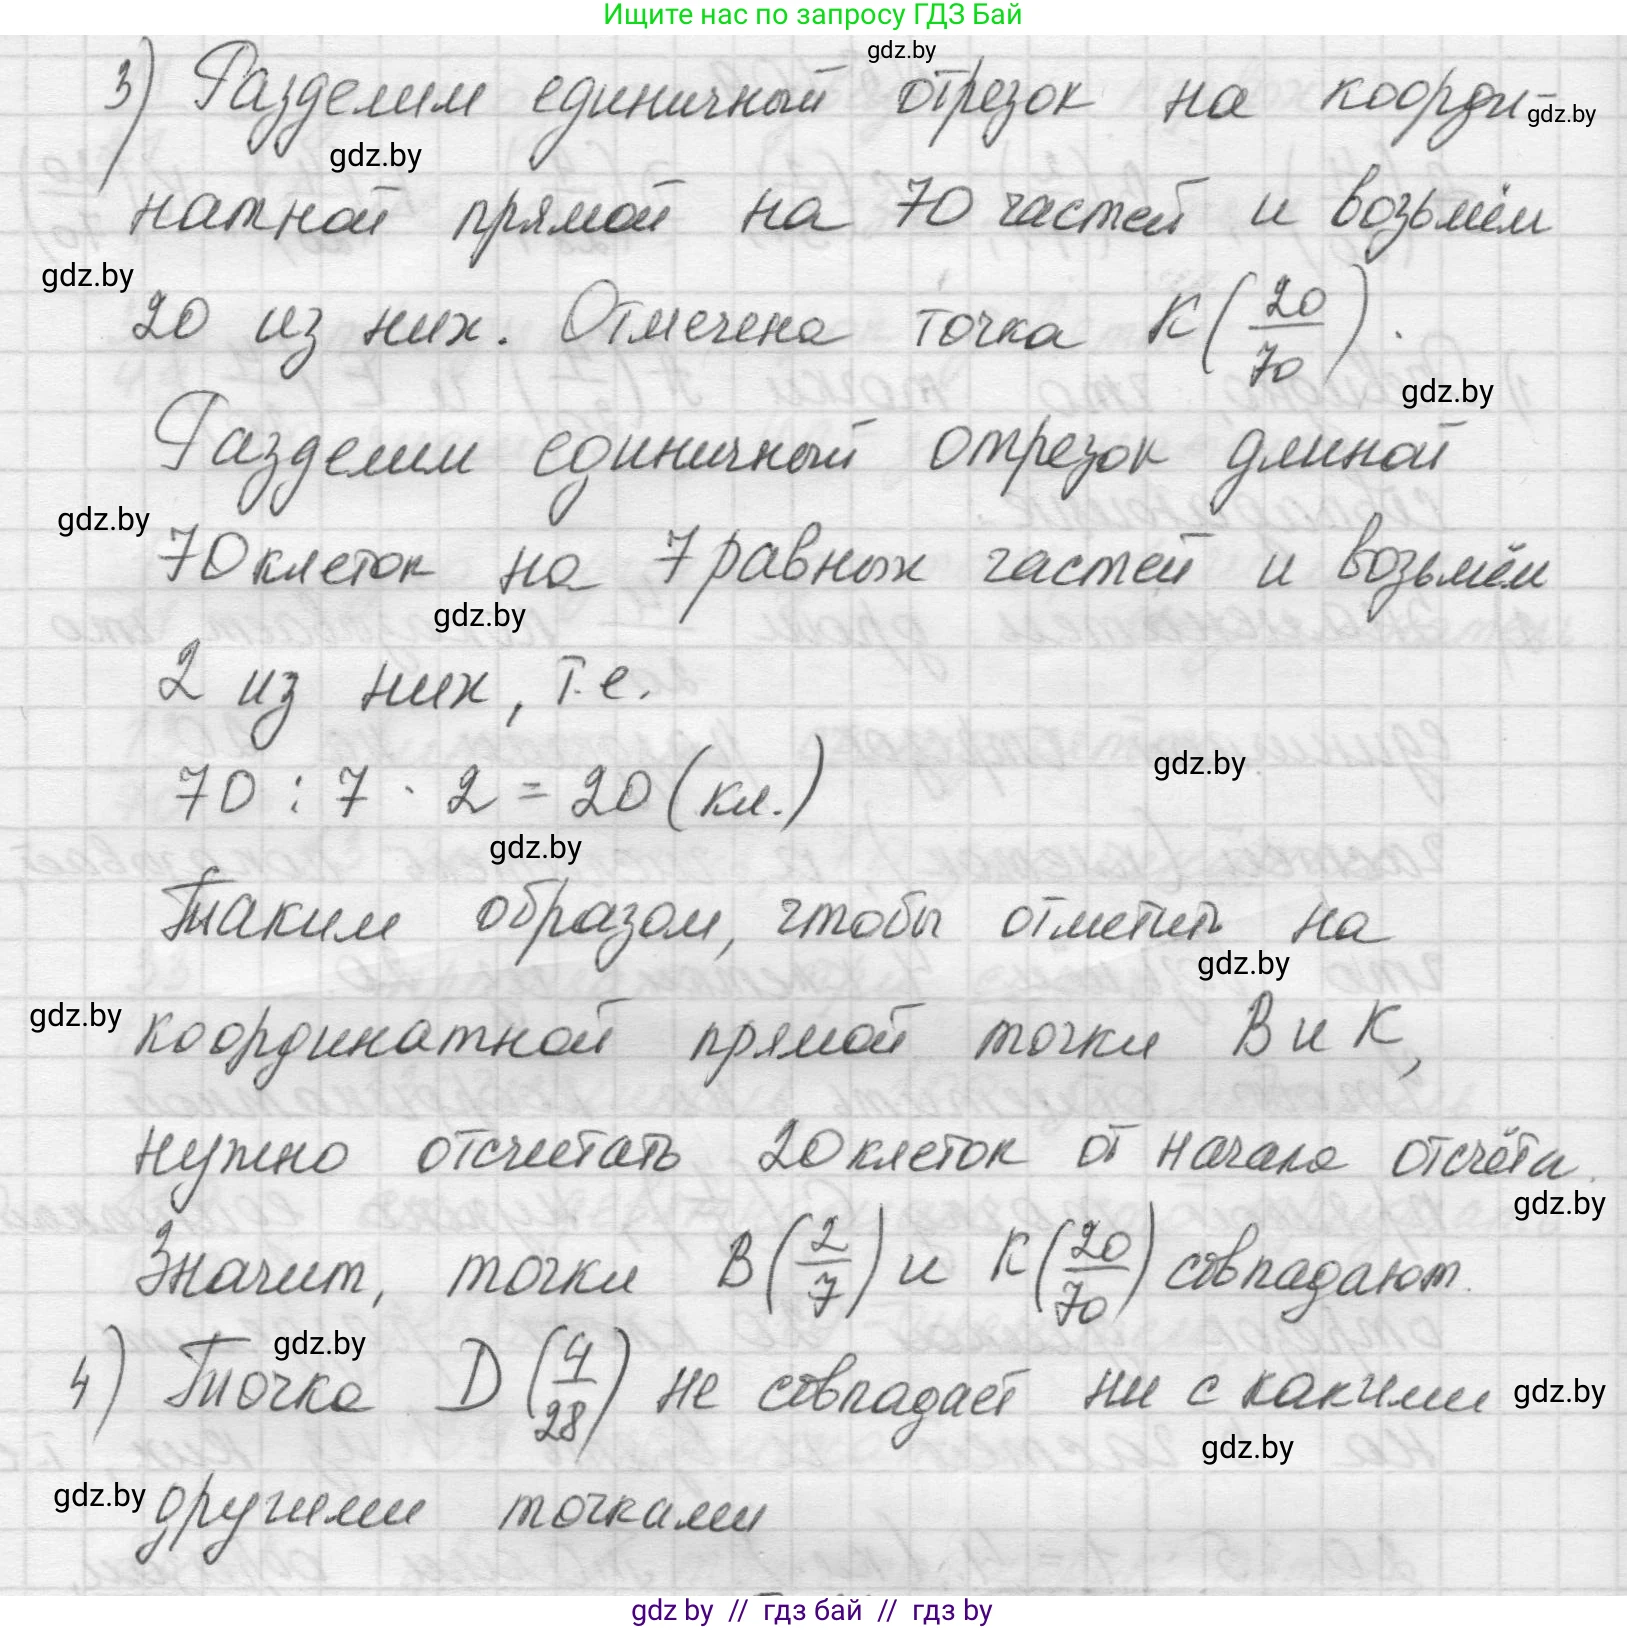 Ищите нас по запросу ГДЗ Бай
gdz.by
3) Разделим единичный отрезок на коорди-
gdz.by
gdz.by
натной прямой на 70 частей и возьмём
gdz.by
20 из них. Отмечена точка K(20/70).
gdz.by
Разделим единичный отрезок длиной
gdz.by
70 клеток на 7 равных частей и возьмём
gdz.by
2 из них, т.е.
gdz.by
70 : 7 · 2 = 20 (кл.)
gdz.by
Таким образом, чтобы отметить на
gdz.by
gdz.by
координатной прямой точки B и K,
нужно отсчитать 20 клеток от начала отсчёта.
gdz.by
Значит, точки B(2/7) и K(20/70) совпадают.
gdz.by
4) Точка D(4/28) не совпадает ни с какими
gdz.by
gdz.by
gdz.by
другими точками
gdz by // гдз бай // гдз by